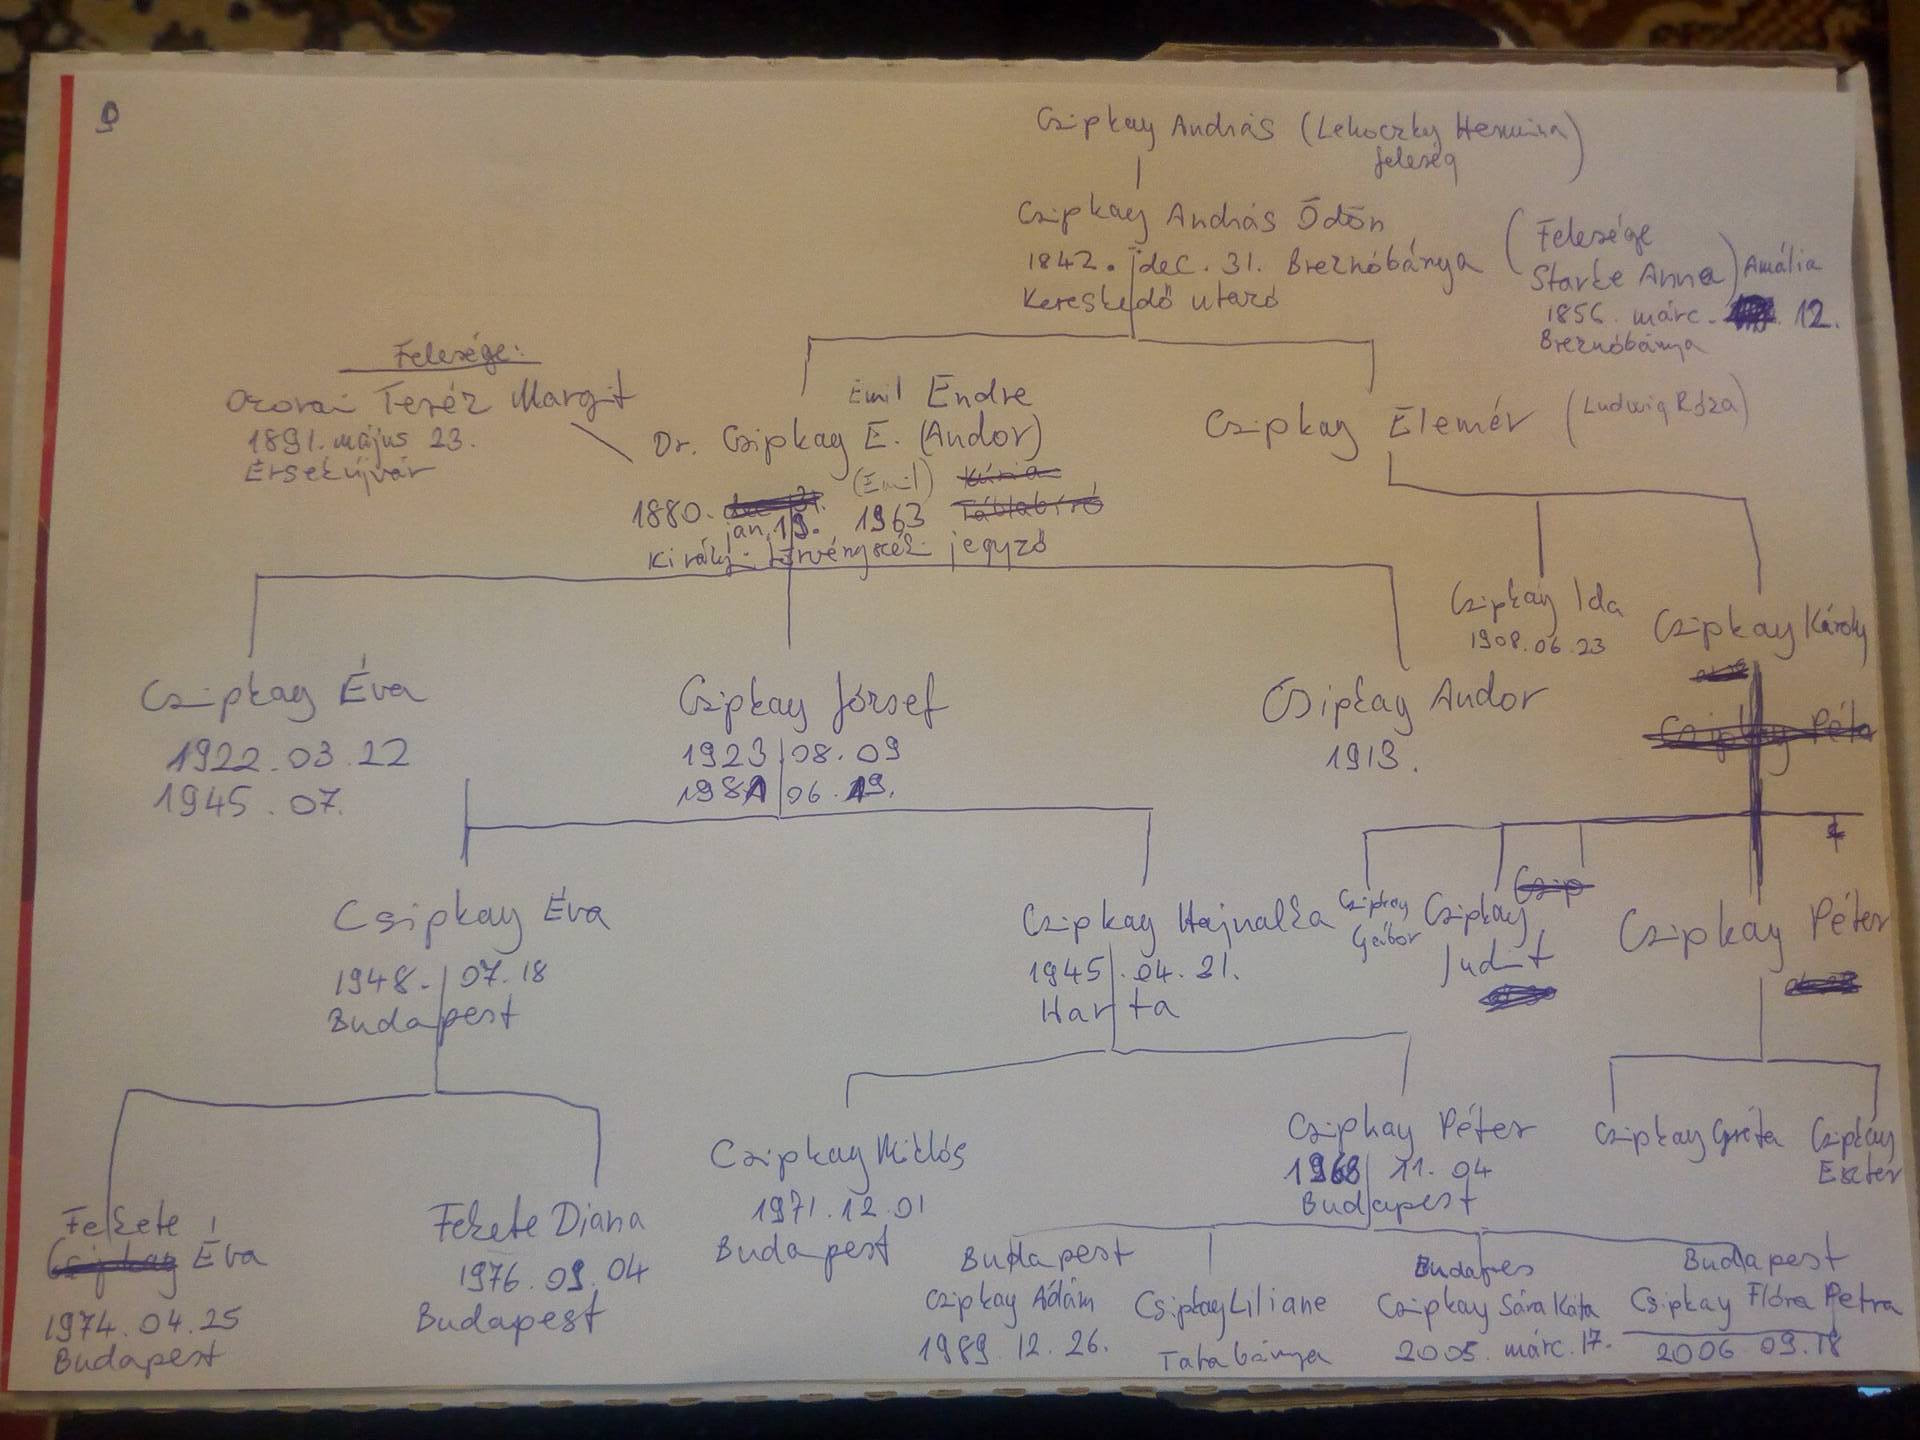 Csipkay András (Lehoczky Hermina)
feleség
Csipkay András Ödön
1842. dec. 31. Breznóbánya
Kereskedő utazó
(Felesége
Starke Anna) Amália
1856. márc. 12.
Breznóbánya
Felesége:
Ozorai Teréz Margit
1891. május 23.
Érsekújvár
Emil Endre
Dr. Csipkay E. (Andor)
(Emil) Kúria
1880. dec 31. 1963 Táblabíró
jan. 19.
Király. törvényszék. jegyző
Csipkay Elemér (Ludwig Róza)
Csipkay Ida
1908.06.23
Csipkay Károly
Csipkay Péter
Csipkay Éva
1922.03.22
1945.07.
Csipkay József
1923 08.09
1981 06.19.
Csipkay Andor
1913.
Csipkay Éva
1948. 07.18
Budapest
Csipkay Hajnalka
1945.04.21.
Harta
Csipkay
Gábor
Csip
Csipkay
Judit
Csipkay Péter
Fekete
Csipkay Éva
1974.04.25
Budapest
Fekete Diana
1976.09.04
Budapest
Csipkay Miklós
1971.12.01
Budapest
Csipkay Péter
1968 11.04
Budapest
Csipkay Gréta
Csipkay
Eszter
Budapest
Csipkay Ádám
1989.12.26.
Csipkay Liliane
Tatabánya
Budapes
Csipkay Sára Kata
2005. márc. 17.
Budapest
Csipkay Flóra Petra
2006 09.18